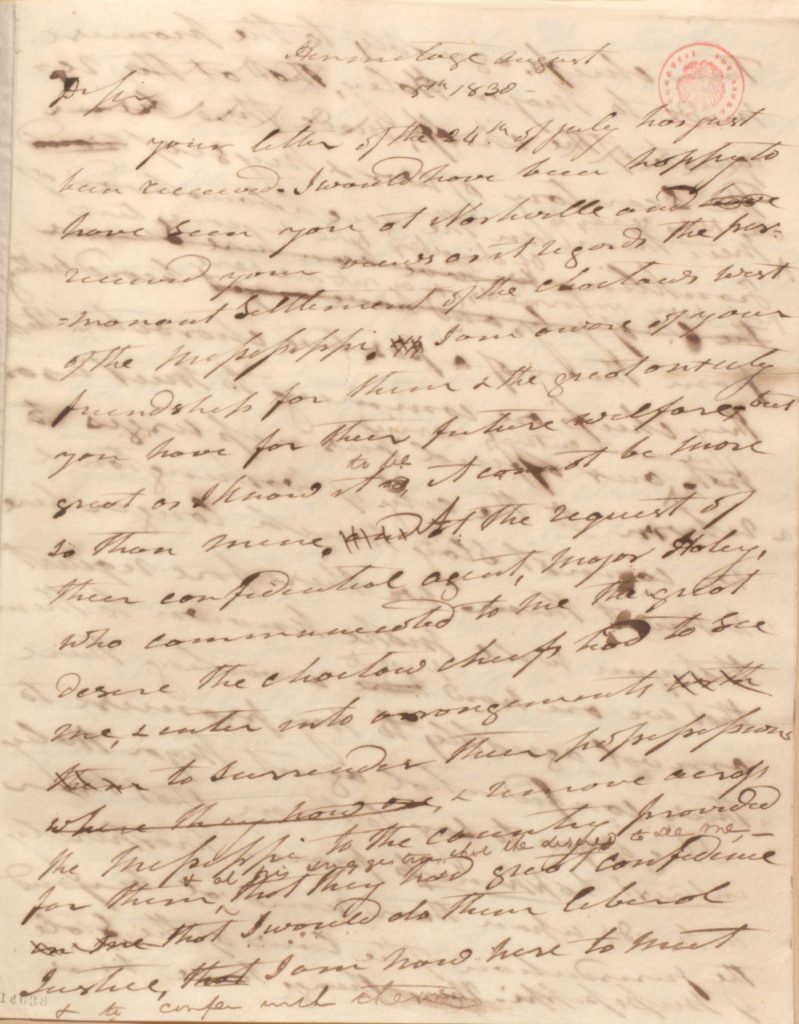 Hermitage August
8th 1830-
Dr Sir
your letter of the 24th of July has just
been received. I would have been happy to
have seen you at Nashville and have
received your views as it regards the per-
=manant Settlement of the choctaws west
of the Missippi. I am aware of your
friendship for them & the great anxiety
you have for their future welfare, but
great as I know it to be, it cannot be more
so than mine. At the request of
their confidential agent, Major Haley,
who communicated to me the great
desire the choctaw chiefs had to see
me, & enter into arrangements
to surrender their possessions
where they now are, & remove across
the Missippi to the country provided
& at his suggestion that the desired to see me,
for them, that they had great confidence
in me that I would do them liberal
Justice, that I am now here to meet
& to confer with them
14638